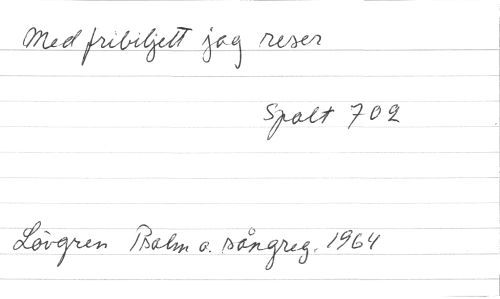 Med fribiljett jag reser
Spalt 702
Lövgren Psalm o. sångreg. 1964